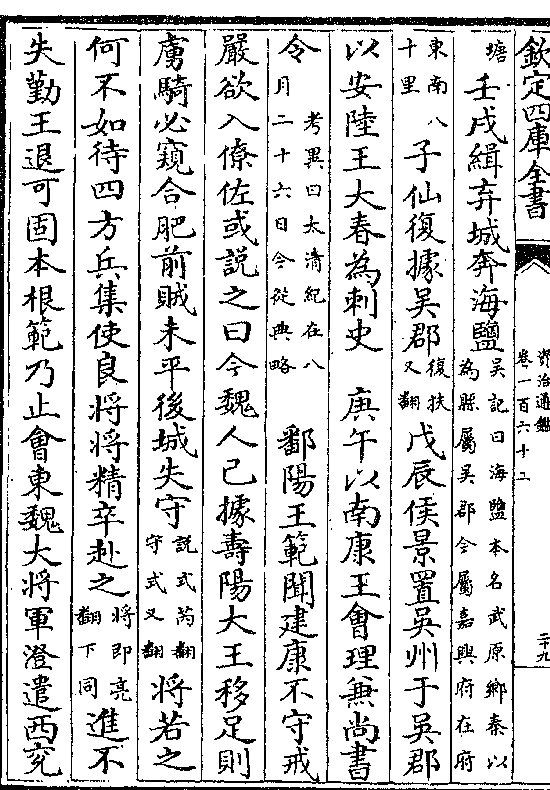 欽定四庫全書 資治通鑑 卷一百六十二 二十九
塘 壬戌緝弃城奔海鹽 吳記曰海鹽本名武原鄉秦以為縣屬吳郡今屬嘉興府在府
東南八十里 子仙復據吳郡 復扶又翻 戊辰侯景置吳州于吳郡
以安陸王大春為刺史 庚午以南康王會理兼尚書
令 考異曰太清紀在八月二十六日今從典略 鄱陽王範聞建康不守戒
嚴欲入僚佐或説之曰今魏人已據壽陽大王移足則
虜騎必窺合肥前賊未平後城失守 説式芮翻守式又翻 將若之
何不如待四方兵集使良將將精卒赴之 將即亮翻下同 進不
失勤王退可固本根範乃止會東魏大將軍澄遣西兖